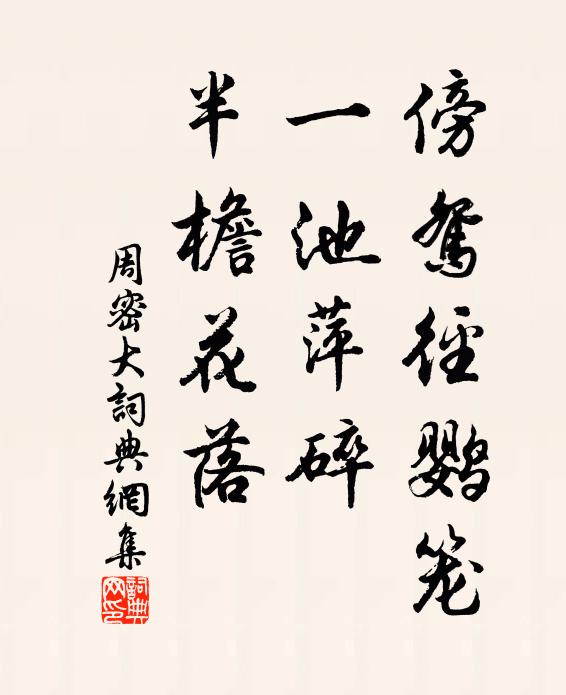 傍鴛徑鸚笼
一池萍碎
半檐花落
周密大詞典網集
詞典网印